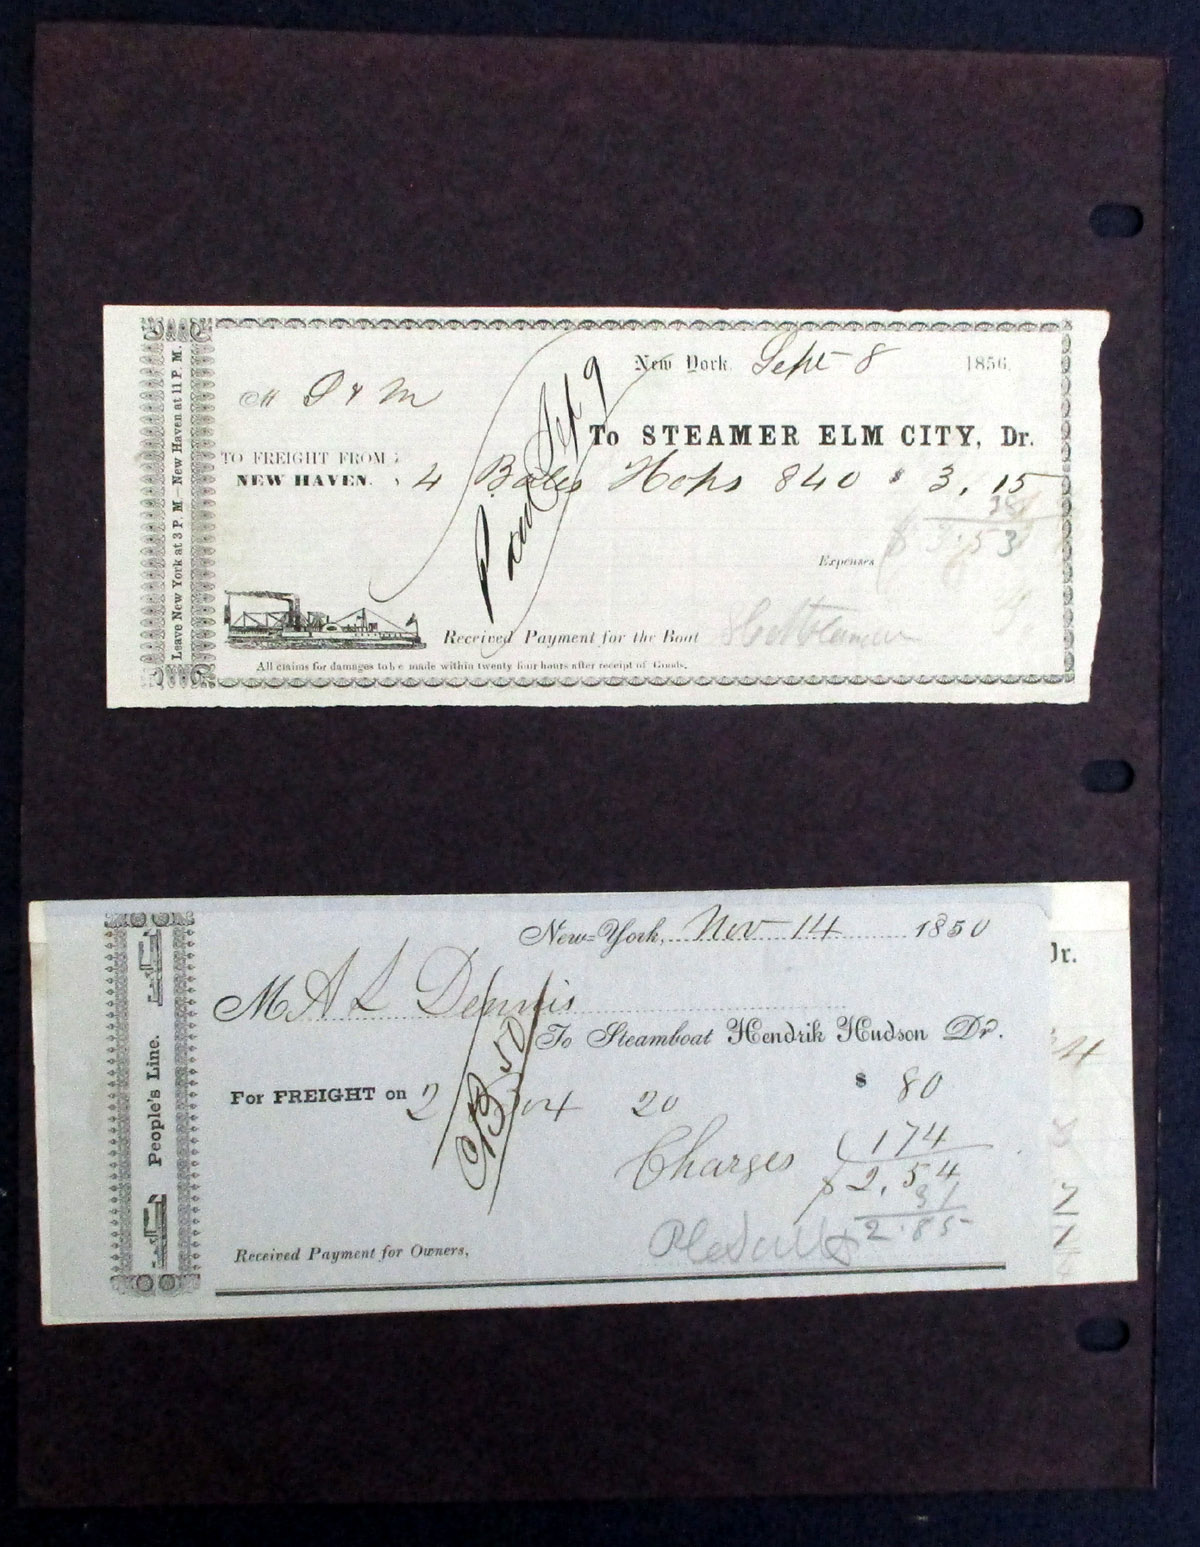 Leave New York at 3 P.M. — New Haven at 11 P.M.
New York, Sept 8 1856.
M D & M
To STEAMER ELM CITY, Dr.
TO FREIGHT FROM
NEW HAVEN. 4 Bales Hops 840 $ 3,15
38
$ 3.53
Expenses
Paid Sept 9
Received Payment for the Boat
All claims for damages to be made within twenty four hours after receipt of Goods.
People's Line.
New-York, Nov 14 1850
M A L Dennis
To Steamboat Hendrik Hudson Dr.
For FREIGHT on 2 20 $ 80
Charges 174
$ 2,54
31
2.85
Received Payment for Owners,
Dr.
4